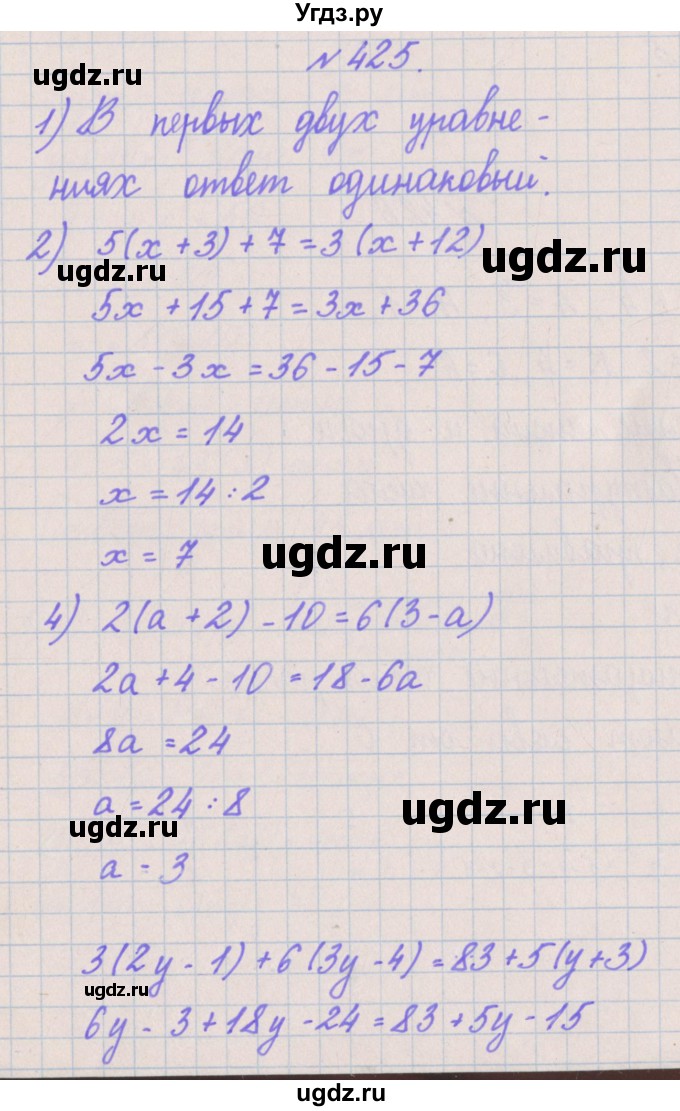 Угдз.ру
№ 425.
ugdz.ru
1) В первых двух уравне-
ниях ответ одинаковый.
2) 5(x + 3) + 7 = 3(x + 12)
ugdz.ru
ugdz.ru
5x + 15 + 7 = 3x + 36
5x - 3x = 36 - 15 - 7
2x = 14
x = 14 : 2
ugdz.ru
x = 7
ugdz.ru
4) 2(a + 2) - 10 = 6(3 - a)
2a + 4 - 10 = 18 - 6a
8a = 24
a = 24 : 8
ugdz.ru
ugdz.ru
a - 3
3(2y - 1) + 6(3y - 4) = 83 + 5(y + 3)
ugdz.ru
6y - 3 + 18y - 24 = 83 + 5y - 15
ugdz.ru